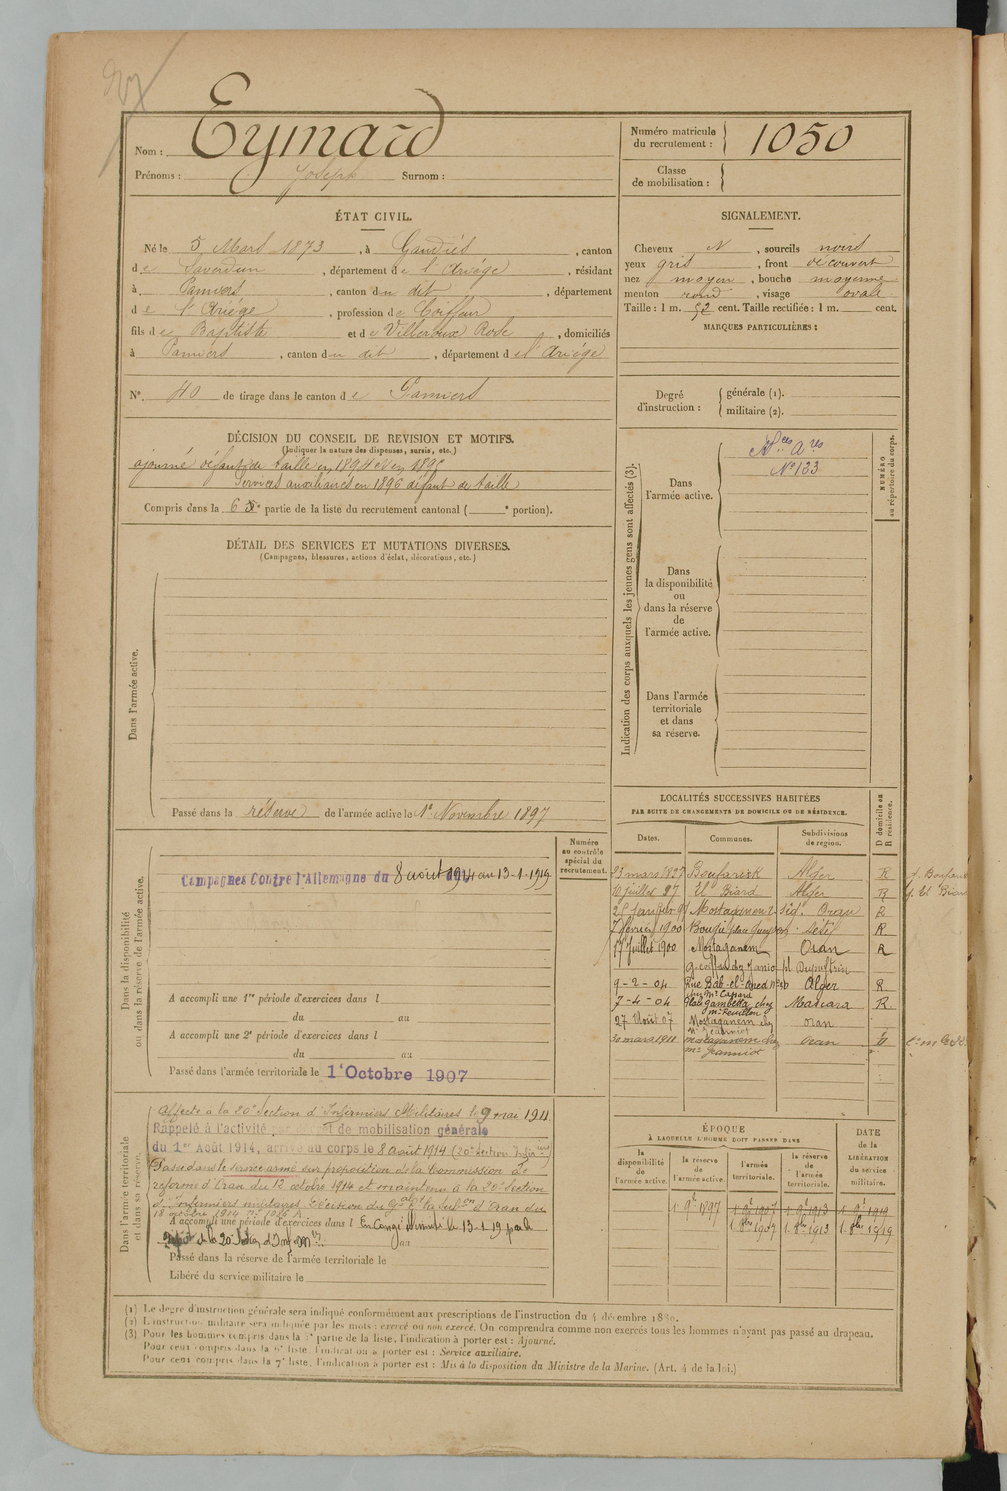 Nom : Eymard
Prénoms : Joseph Surnom :
Numéro matricule du recrutement : 1050
Classe de mobilisation :
ÉTAT CIVIL.
Né le 5 Mars 1873, à Gaudiès, canton
de Saverdun, département de l'Ariége, résidant
à Pamiers, canton du dit, département
de l'Ariége, profession de Coiffeur
fils de Baptiste et de Villeroux Rose, domiciliés
à Pamiers, canton du dit, département de l'Ariége
N°. 40 de tirage dans le canton de Pamiers
SIGNALEMENT.
Cheveux N, sourcils noirs
yeux gris, front découvert
nez moyen, bouche moyenne
menton rond, visage ovale
Taille : 1 m. 52 cent. Taille rectifiée : 1 m. cent.
MARQUES PARTICULIÈRES :
Degré d'instruction : générale (1).
militaire (2).
DÉCISION DU CONSEIL DE REVISION ET MOTIFS.
(Indiquer la nature des dispenses, sursis, etc.)
ajourné défaut de taille en 1894 et en 1895
Services auxiliaires en 1896 défaut de taille
Compris dans la 6e partie de la liste du recrutement cantonal ( e portion).
DÉTAIL DES SERVICES ET MUTATIONS DIVERSES.
(Campagnes, blessures, actions d'éclat, décorations, etc.)
Dans l'armée active.
Passé dans la réserve de l'armée active le 1er Novembre 1897
Indication des corps auxquels les jeunes gens sont affectés (3).
NUMÉRO au répertoire du corps.
Dans l'armée active.
N° 133
Dans la disponibilité ou dans la réserve de l'armée active.
Dans l'armée territoriale et dans sa réserve.
Dans la disponibilité ou dans la réserve de l'armée active.
Numéro au contrôle spécial du recrutement.
Campagnes Contre l'Allemagne du 8 août 1914 au 13-1-1919
A accompli une 1re période d'exercices dans l
du au
A accompli une 2e période d'exercices dans l
du au
Passé dans l'armée territoriale le 1er Octobre 1907
LOCALITÉS SUCCESSIVES HABITÉES
PAR SUITE DE CHANGEMENTS DE DOMICILE OU DE RÉSIDENCE.
D domicile ou R résidence.
Dates. Communes. Subdivisions de région.
23 mars 1897 Boufarick Alger R
10 juillet 97 El Biard Alger R
Mostaganem Oran R
7 février 1900 Bougie Sétif R.
17 Juillet 1900 Mostaganem Oran R
9-2-04 Rue Bab-el-Oued Alger R
7-4-04 Place Gambetta chez Mascara R
27 Août 07 Mostaganem chez Mr Jeanniot Oran
30 mars 1911 Mostaganem chez Mr Jeanniot Oran
Dans l'armée territoriale et dans sa réserve.
Affecté à la 20e Section d'Infirmiers Militaires le 9 mai 1911
Rappelé à l'activité par décret de mobilisation générale
du 1er Août 1914, arrivé au corps le 8 août 1914 (20e Section Infirers)
Passé dans le service armé sur proposition de la Commission de
réforme d'Oran du 12 octobre 1914 et maintenu à la 20e Section
d'Infirmiers militaires. Décision du Gal Ct la Subon d'Oran du
18 octobre 1914
A accompli une période d'exercices dans l En Congé illimité le 13-1-19 par le
dépôt de la 20e Section d'Infirm
au
Passé dans la réserve de l'armée territoriale le
Libéré du service militaire le
ÉPOQUE
À LAQUELLE L'HOMME DOIT PASSER DANS
DATE de la LIBÉRATION du service militaire.
la disponibilité de l'armée active. la réserve de l'armée active. l'armée territoriale. la réserve de l'armée territoriale.
1 9e 1897 1 9e 1907 1 9e 1913 1 9e 1919
1 8bre 1907 1 8bre 1913 1 8bre 1919
(1) Le degré d'instruction générale sera indiqué conformément aux prescriptions de l'instruction du 4 décembre 1889.
(2) L'instruction militaire sera indiquée par les mots : exercé ou non exercé. On comprendra comme non exercés tous les hommes n'ayant pas passé au drapeau.
(3) Pour les hommes compris dans la partie de la liste, l'indication à porter est : Ajourné.
Pour ceux compris dans la 6e liste, l'indication à porter est : Service auxiliaire.
Pour ceux compris dans la 7e liste, l'indication à porter est : Mis à la disposition du Ministre de la Marine. (Art. 4 de la loi.)